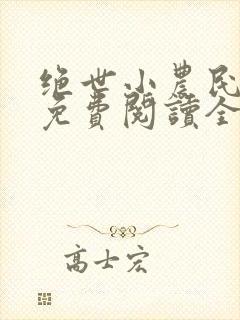 绝世小農民
免費閱讀全
高士宏